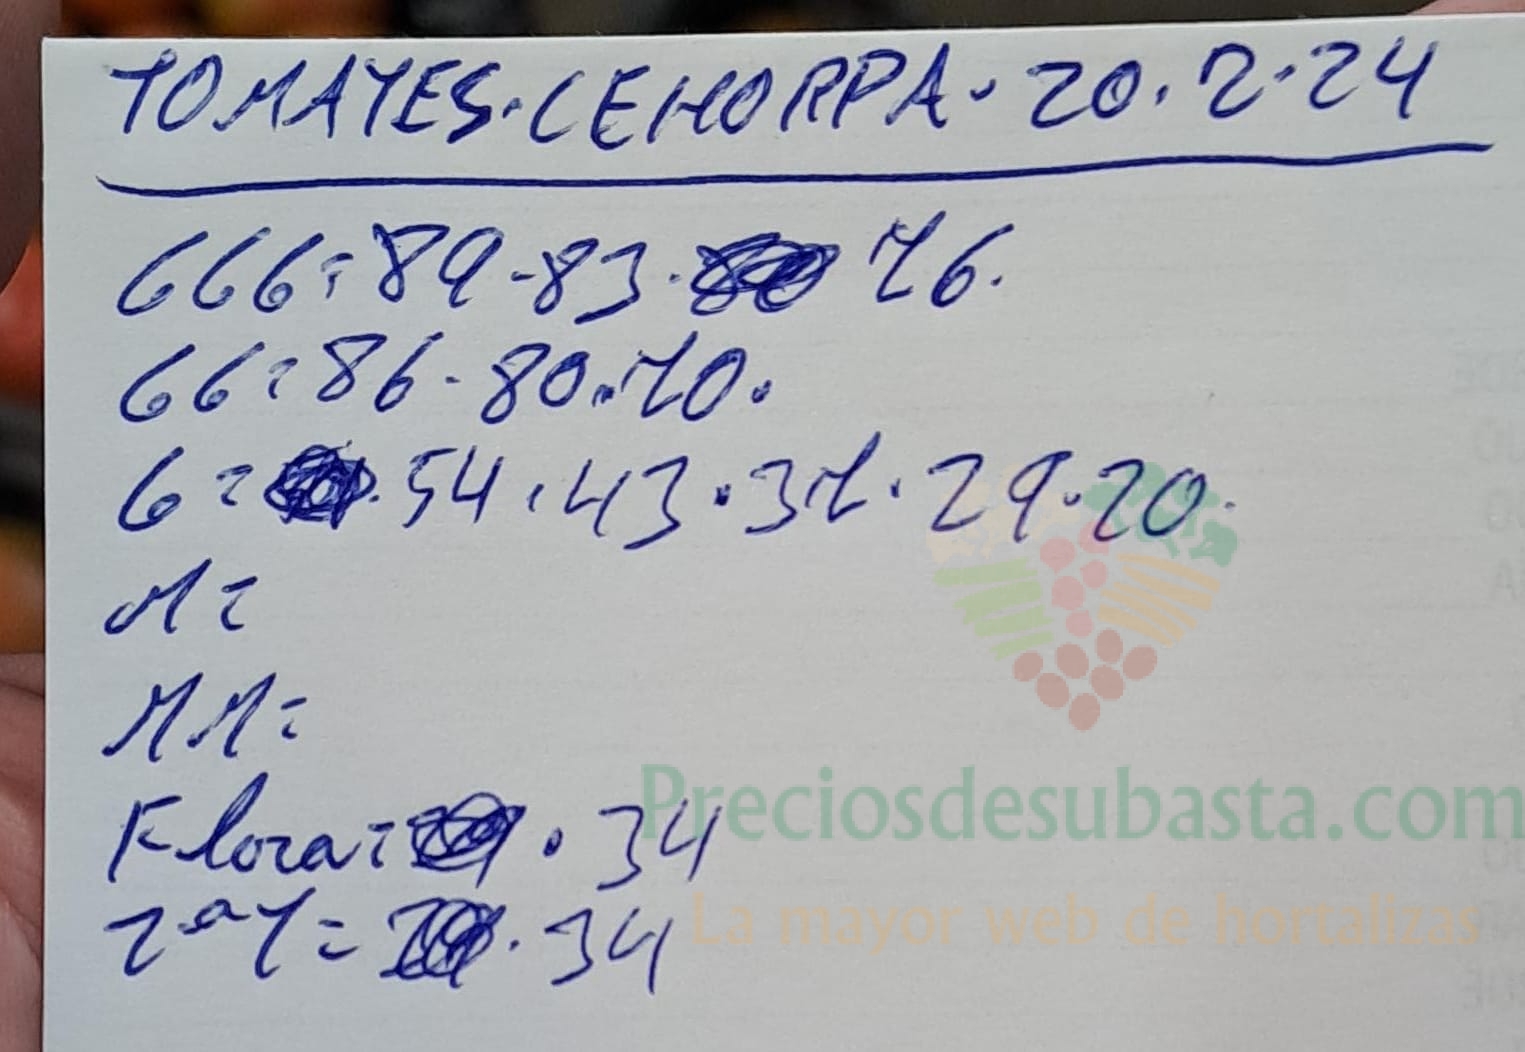 TOMATES·CEHORPA·20·2·24
666=89-83·76.
66=86-80·70.
6=·54·43·37·29·20.
M=
MM=
Flora=·34
2ªT=·34
Preciosdesubasta.com
La mayor web de hortalizas